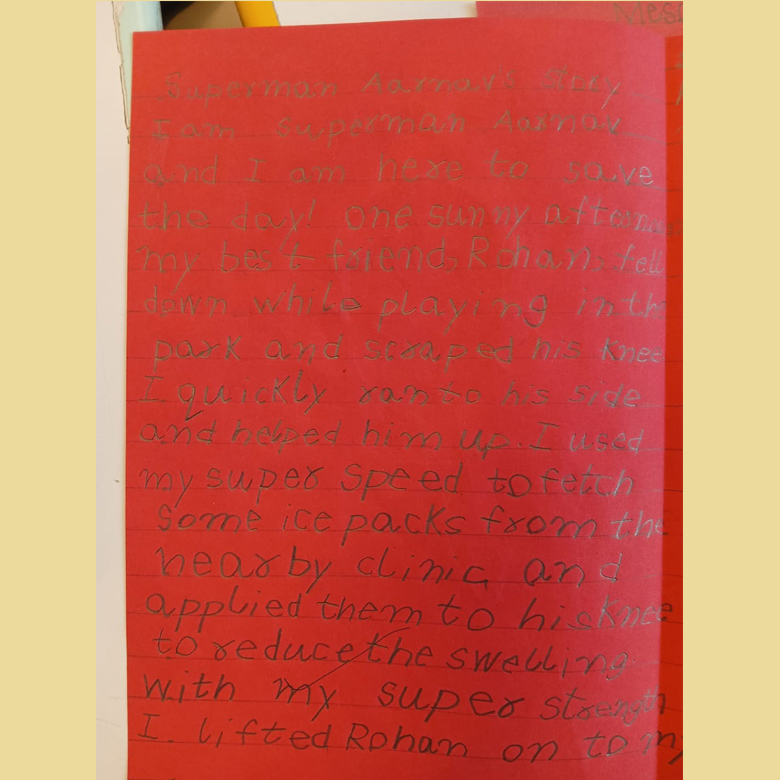 Mes
Superman Aarnav's story
I am superman Aarnav
and I am here to save
the day! one sunny afternoon
my best friend, Rohan, fell
down while playing in th
park and scraped his knee
I quickly ran to his side
and helped him up. I used
my super speed to fetch
some ice packs from the
nearby clinic and
applied them to his knee
to reduce the swelling
with my super strength
I lifted Rohan on to my